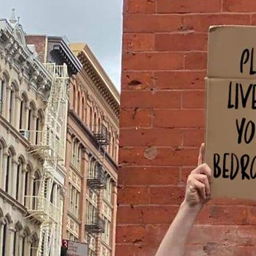 PL
LIVE
YO
BEDRO